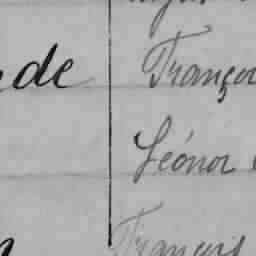 de Françoi
Léonor
François